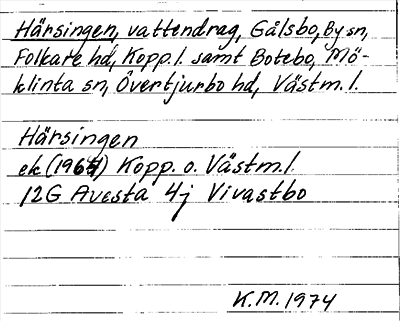 Härsingen, vattendrag, Gålsbo, By sn,
Folkare hd, Kopp. l. samt Botebo, Mö-
klinta sn, Övertjurbo hd, Västm. l.
Härsingen
ek (1964) Kopp. o. Västm. l.
12G Avesta 4j Vivastbo
K.M. 1974